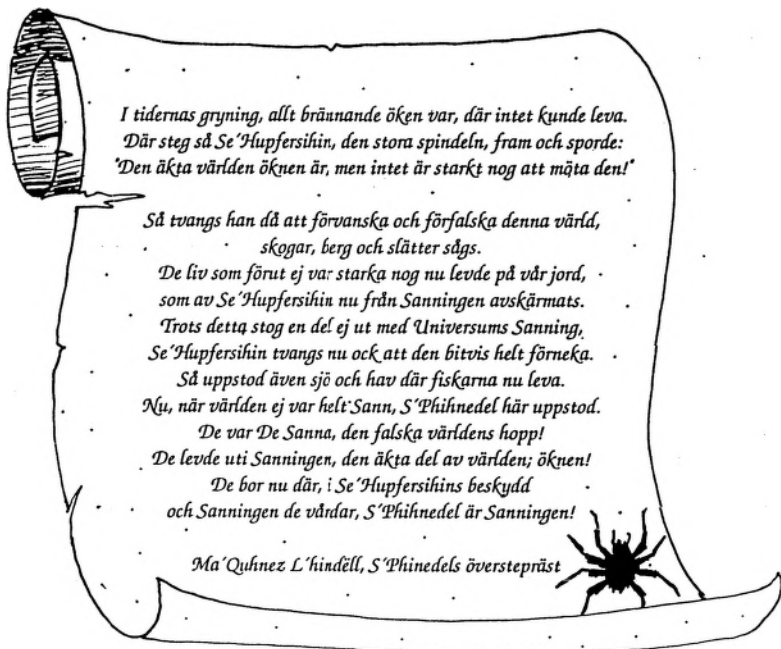 I tidernas gryning, allt brännande öken var, där intet kunde leva.
Där steg så Se´Hupfersihin, den stora spindeln, fram och sporde:
"Den äkta världen öknen är, men intet är starkt nog att möta den!"
Så tvangs han då att förvanska och förfalska denna värld,
skogar, berg och slätter sågs.
De liv som förut ej var starka nog nu levde på vår jord,
som av Se´Hupfersihin nu från Sanningen avskärmats.
Trots detta stog en del ej ut med Universums Sanning,
Se´Hupfersihin tvangs nu ock att den bitvis helt förneka.
Så uppstod även sjö och hav där fiskarna nu leva.
Nu, när världen ej var helt Sann, S´Phihnedel här uppstod.
De var De Sanna, den falska världens hopp!
De levde uti Sanningen, den äkta del av världen; öknen!
De bor nu där, i Se´Hupfersihins beskydd
och Sanningen de vårdar, S´Phihnedel är Sanningen!
Ma´Quhnez L´hindëll, S´Phinedels överstepräst